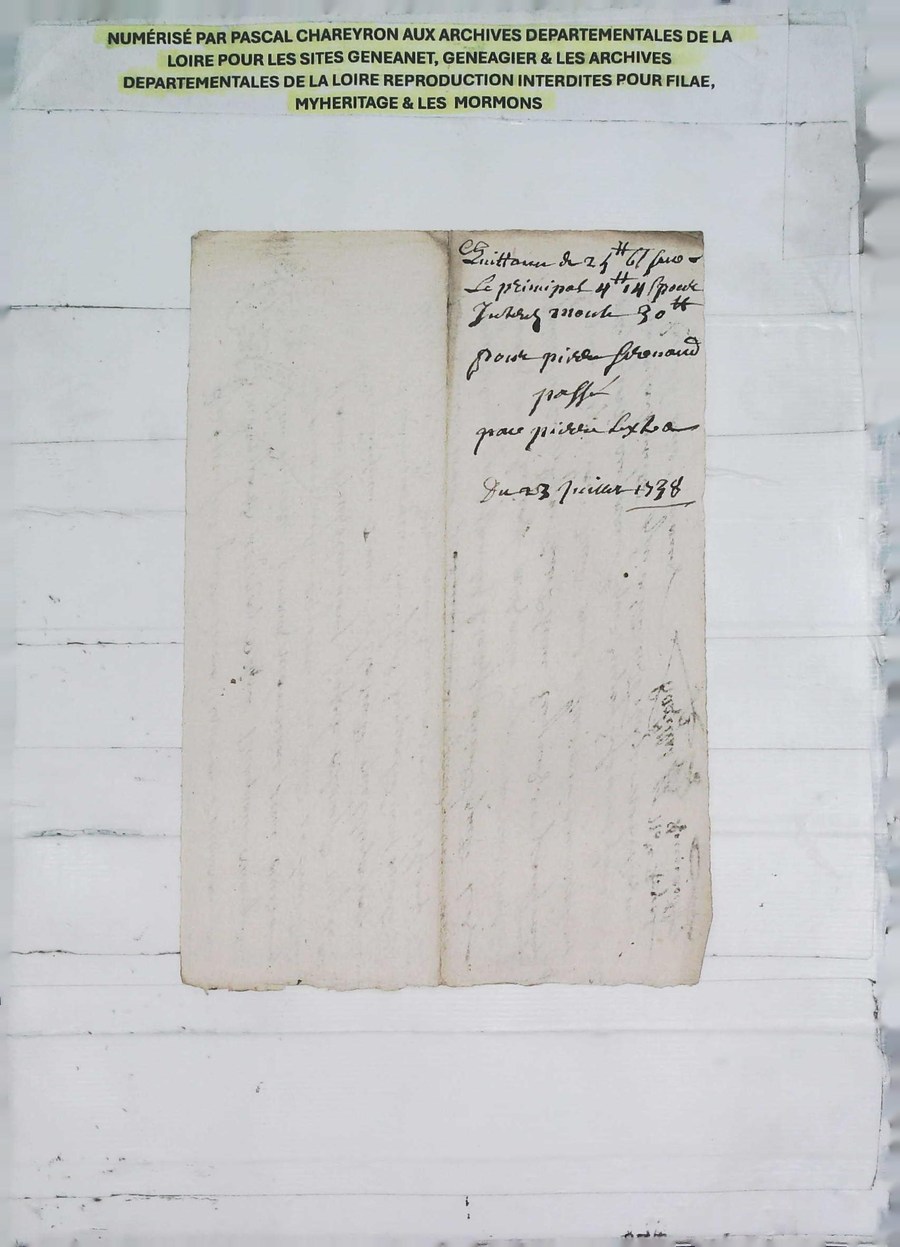 NUMÉRISÉ PAR PASCAL CHAREYRON AUX ARCHIVES DEPARTEMENTALES DE LA
LOIRE POUR LES SITES GENEANET, GENEAGIER & LES ARCHIVES
DEPARTEMENTALES DE LA LOIRE REPRODUCTION INTERDITES POUR FILAE,
MYHERITAGE & LES MORMONS
Quittance de 25 ₶ 6 s
Le principal 4 ₶ 14 s pour
Interest monte 30 ₶
pour pierre
passé
par pierre
Du 23 Juillet 1738